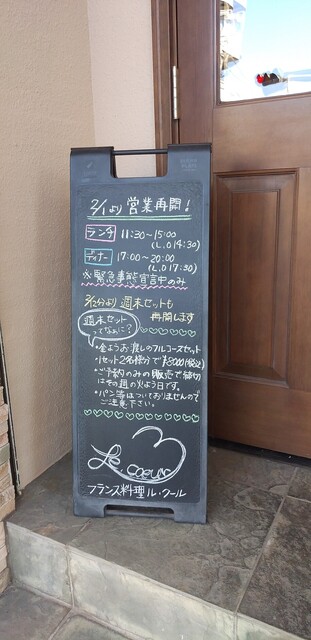 2/1より 営業再開!
ランチ 11:30~15:00
(L.O 14:30)
ディナー 17:00~20:00
(L.O 17:30)
※緊急事態宣言中のみ
週末セットも
再開します
週末セット
ってなあに?
・金ようお渡しのフルコースセット
・1セット2名様分で¥8000(税込)
・ご予約のみの販売で締切
はその週の火よう日です。
・パン等はついておりませんので
ご注意下さい。
Le coeur
フランス料理 ル・クール